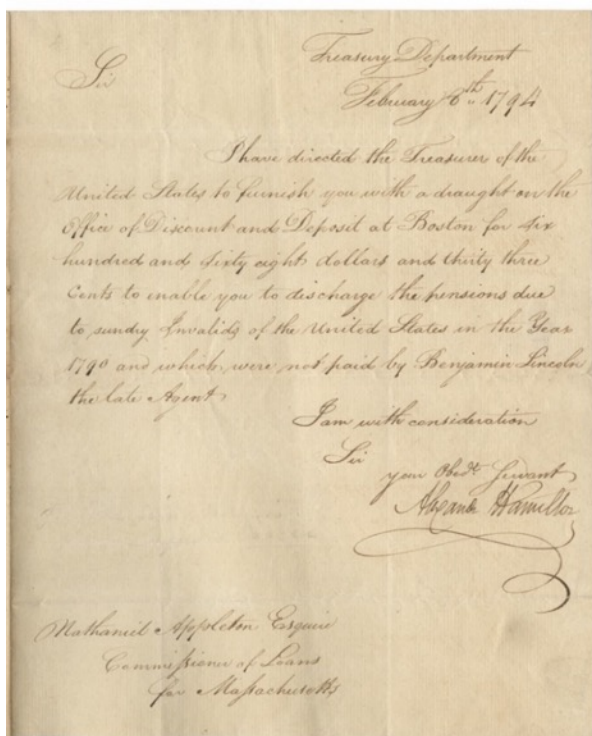 Treasury Department
Sir
February 6th 1794
I have directed the Treasurer of the
United States to furnish you with a draught on the
Office of Discount and Deposit at Boston for Six
hundred and Sixty eight dollars and thirty three
Cents to enable you to discharge the pensions due
to sundry Invalids of the United States in the Year
1790 and which were not paid by Benjamin Lincoln
the late Agent
I am with consideration
Sir
your Obedt Servant
Alexander Hamilton
Nathaniel Appleton Esquire
Commissioner of Loans
for Massachusetts